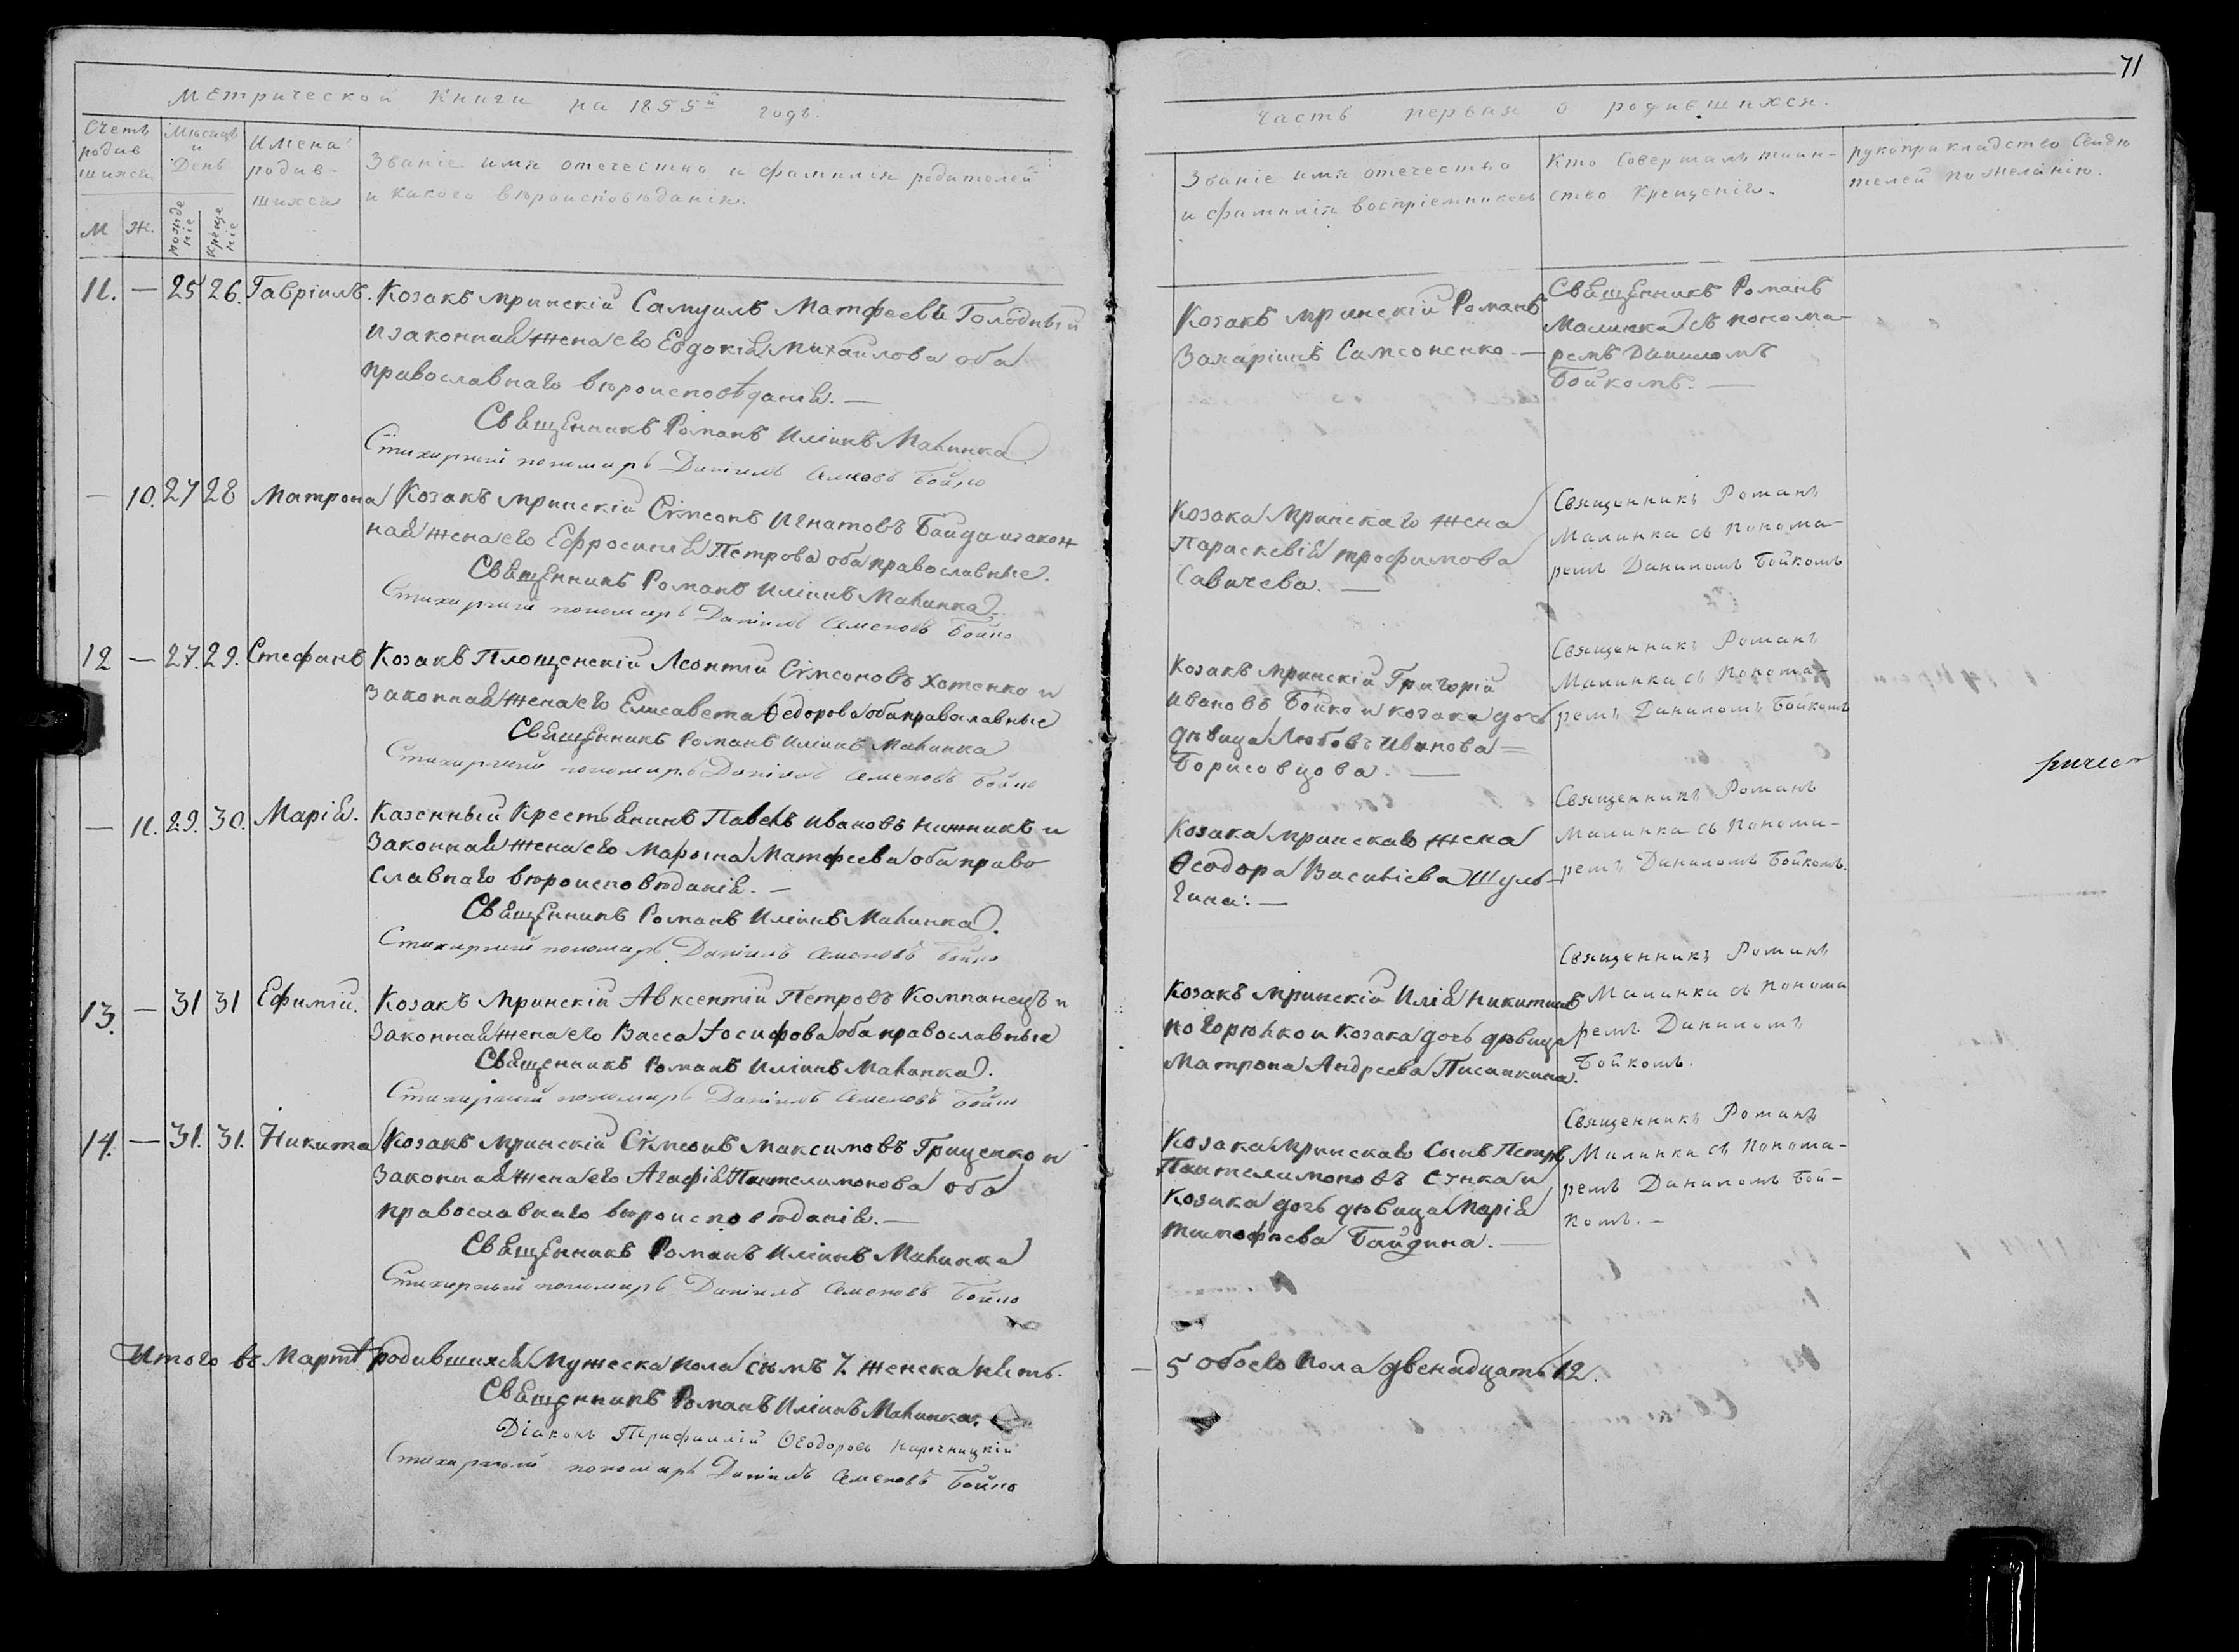 71
Метрической Книги на 1855й годъ.
Счетъ родив шихся
М Ж.
Мѣсяцъ и День
рожде ніе
креще ніе
Имена родив- шихся
Званіе имя отечество и фамилія родителей
и какого вѣроисповѣданія.
11. — 25 26. Гавріилъ. Козакъ мринскій Самуилъ Матфеевъ Голодный
и законная жена его Евдокія Михайлова оба
православнаго вѣроисповѣданія. —
Священникъ Романъ Иліинъ Малинка
Стихирный пономарь Даніилъ Семеновъ Бойко
— 10. 27 28 Матрона Козакъ мринскій Сімеонъ Игнатовъ Байда и закон
ная жена его Ефросинія Петрова оба православные.
Священникъ Романъ Иліинъ Малинка.
Стихирный пономарь Даніилъ Семеновъ Бойко
12 — 27. 29. Стефанъ Козакъ Площенскій Леонтій Сімеоновъ Хоменко и
Законная жена его Елисавета Ѳедорова оба православные
Священникъ Романъ Иліинъ Малинка
Стихирный пономарь Даніилъ Семеновъ Бойко
— 11. 29. 30. Марія. Казенный Крестьянинъ Павелъ Ивановъ Нижникъ и
Законная жена его Марѳа Матфеева оба право
славнаго вѣроисповѣданія. —
Священникъ Романъ Иліинъ Малинка.
Стихирный пономарь Даніилъ Семеновъ Бойко
13. — 31 31 Ефимій. Козакъ Мринскій Авксентій Петровъ Компанецъ и
Законная жена его Васса Іосифова оба православные
Священникъ Романъ Иліинъ Малинка.
Стихирный пономарь Даніилъ Семеновъ Бойко
14. — 31. 31. Никита Козакъ Мринскій Сімеонъ Максимовъ Гриценко и
Законная жена его Агафія Пантелимонова оба
православнаго вѣроисповѣданія. —
Священникъ Романъ Иліинъ Малинка
Стихирный пономарь Даніилъ Семеновъ Бойко
Итого въ Мартѣ родившихся Мужеска пола семъ 7. женска пять.
Священникъ Романъ Иліинъ Малинка.
Діаконъ Трифиллій Ѳеодоровъ
Стихирный пономарь Даніилъ Семеновъ Бойко
Часть первая о родившихся.
Званіе имя отечество
и фамилія воспріемниковъ
Кто Совершалъ таин-
ство Крещенія.
рукоприкладство Свидѣ
телей по желанію.
Козакъ мринскій Романъ
Захаріинъ Самсоненко. —
Священникъ Романъ
Малинка съ понома-
ремъ Даниломъ
Бойкомъ. —
Козака Мринскаго жена
Параскевія Трофимова
Савичева. —
Священникъ Романъ
Малинка съ Понома-
ремъ Даниломъ Бойкомъ
Козакъ Мринскій Григорій
Ивановъ Бойко и козака дочь
дѣвица Любовь Иванова
Борисовцова. —
Священникъ Романъ
Малинка съ Понома-
ремъ Даниломъ Бойкомъ
Козака Мринскаго жена
Ѳеодора Василіева Шуль-
гина: —
Священникъ Романъ
Малинка съ Понома-
ремъ Даниломъ Бойкомъ.
Козакъ Мринскій Илія Никитинъ
Погорѣлко и Козака дочь дѣвица
Матрона Андреева
Священникъ Романъ
Малинка съ Понома
ремъ Даниломъ
Бойкомъ.
Козака Мринскаго Сынъ Петръ
Пантелимоновъ и
Козака дочь дѣвица Марія
Тимофѣева Байдина. —
Священникъ Романъ
Малинка съ Понома-
ремъ Даниломъ Бой-
комъ. —
— 5 обоего пола двенадцать 12.